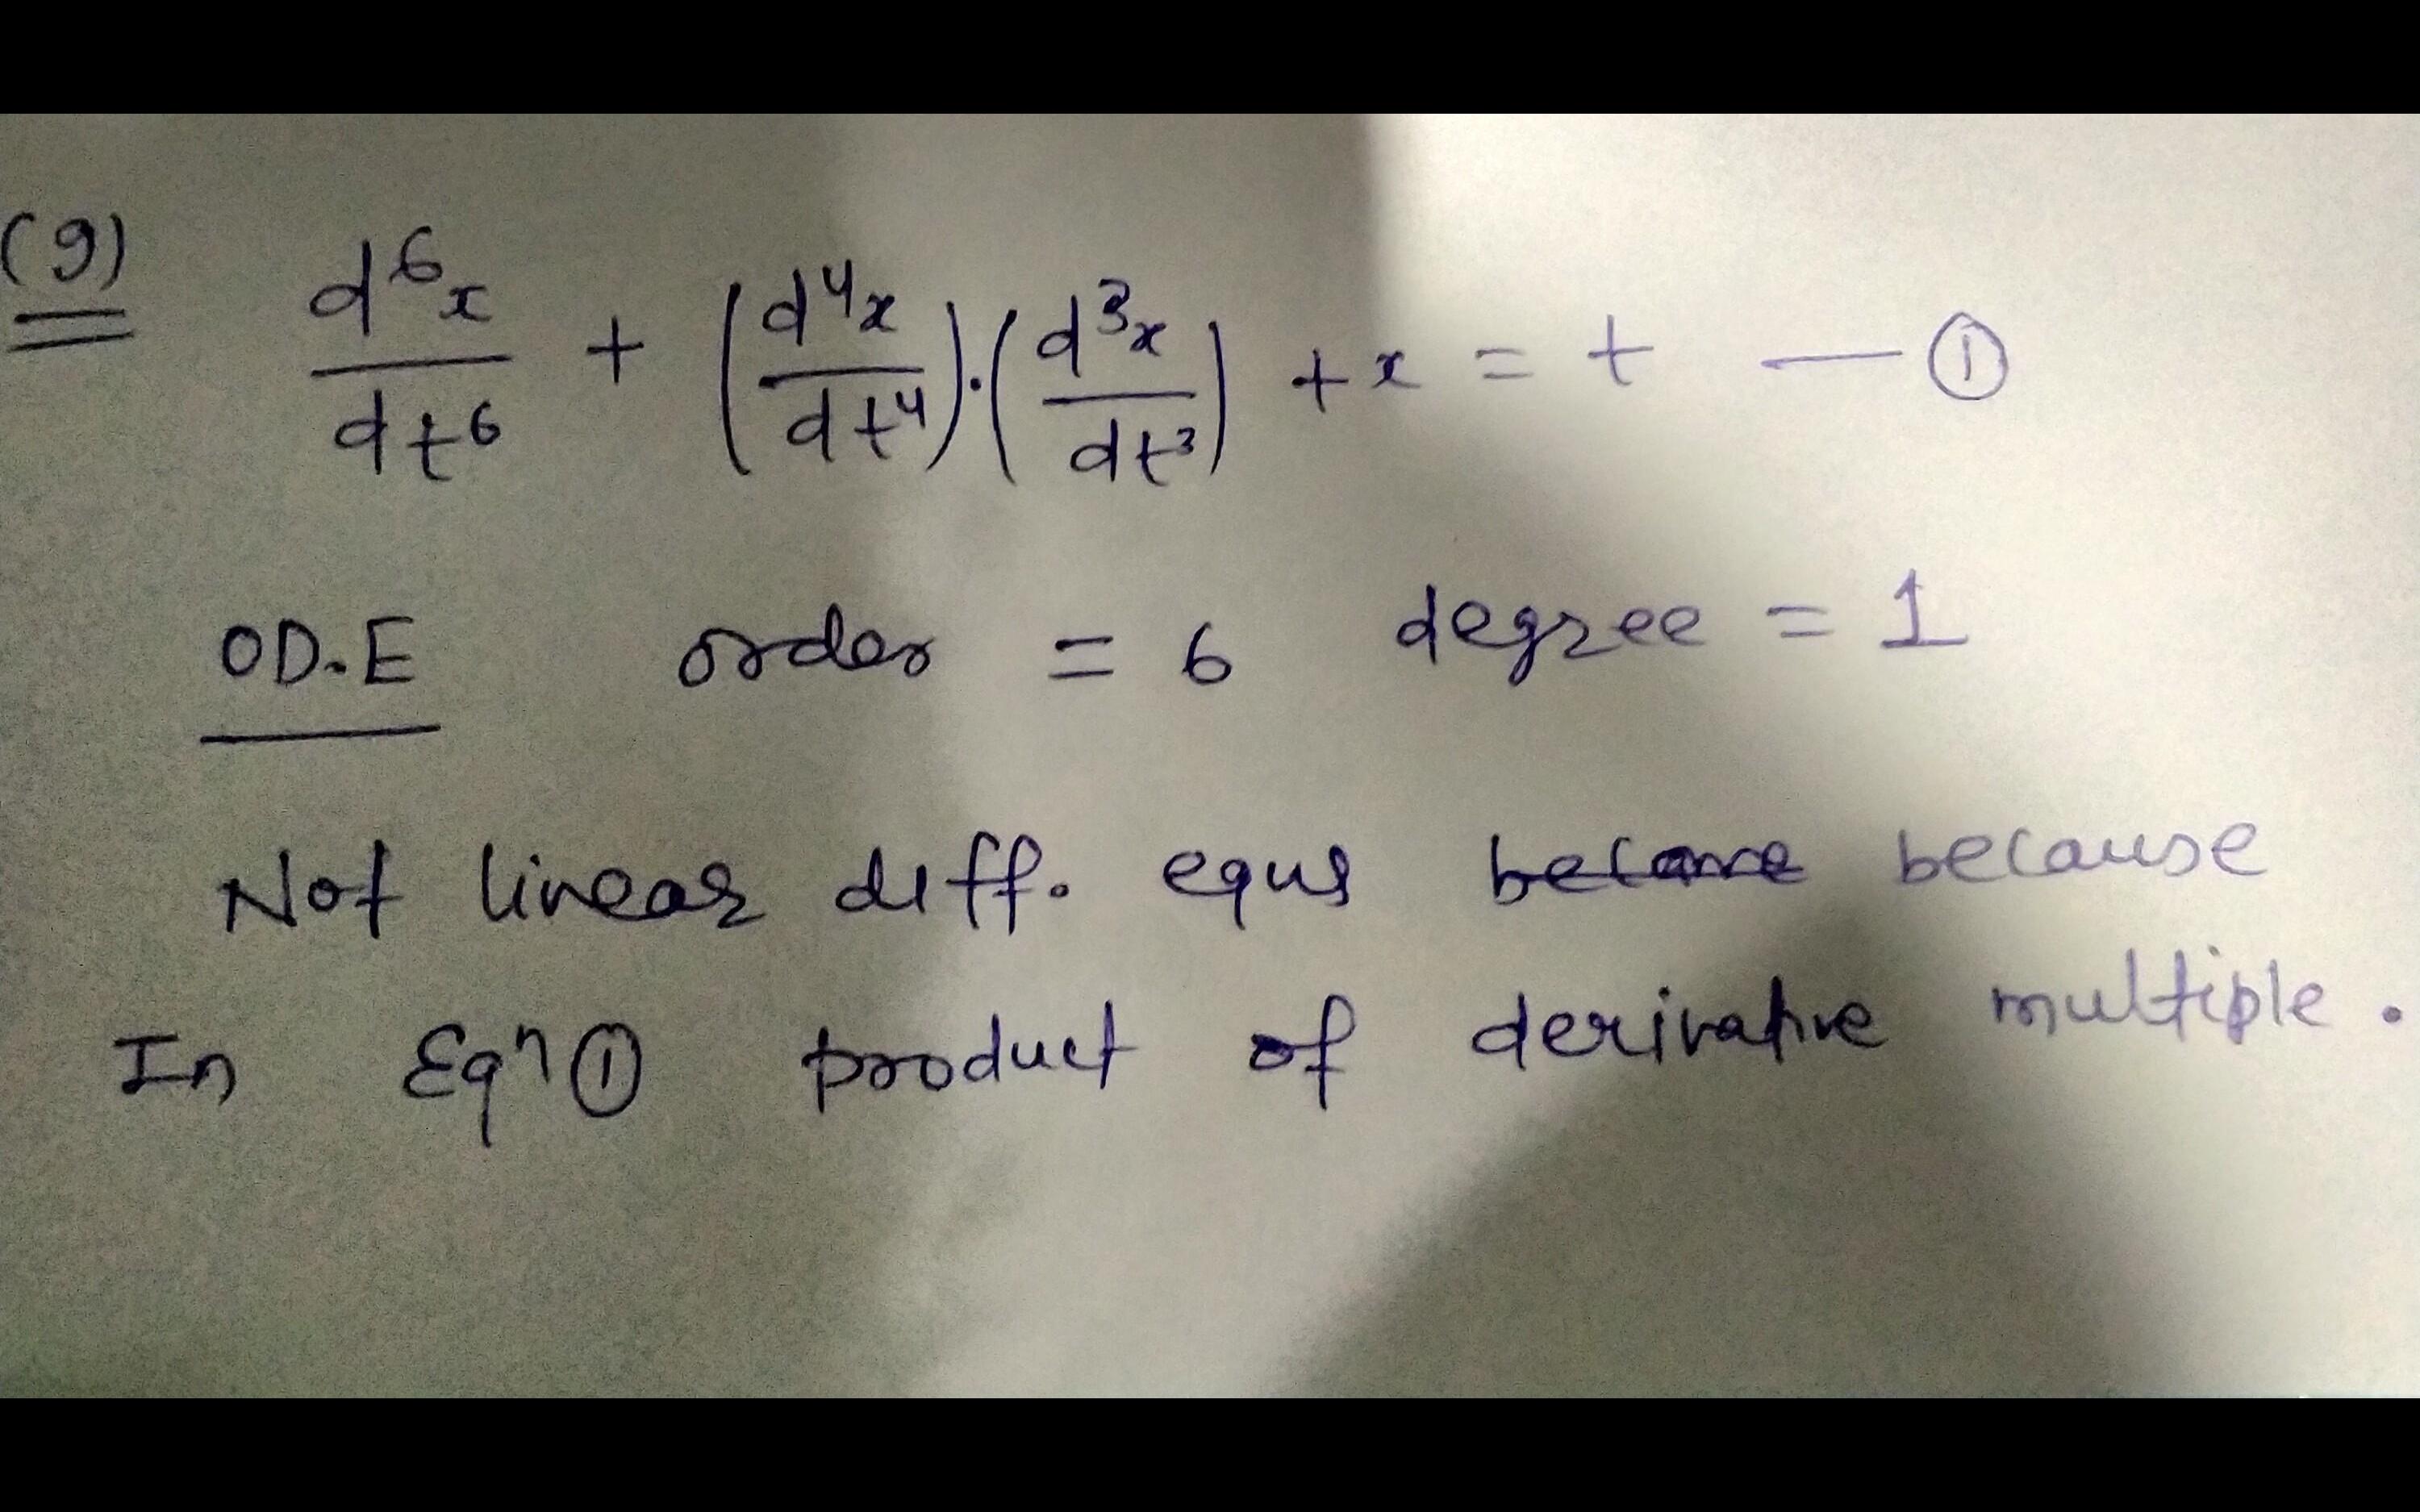 (9) d⁶x/dt⁶ + (d⁴x/dt⁴)·(d³x/dt³) + x = t — ①
OD.E order = 6 degree = 1
Not linear diff. equs because
In Eqⁿ ① product of derivative multiple.